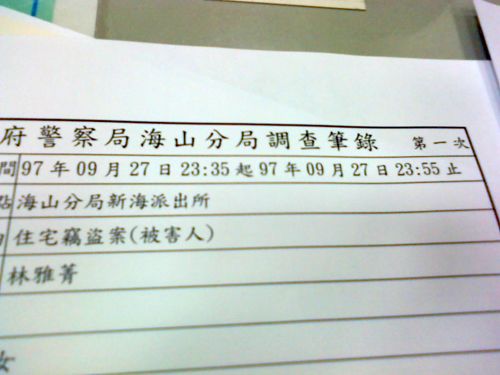 府警察局海山分局調查筆錄 第一次
間 97 年 09 月 27 日 23:35 起 97 年 09 月 27 日 23:55 止
點 海山分局新海派出所
住宅竊盜案(被害人)
林雅菁
女